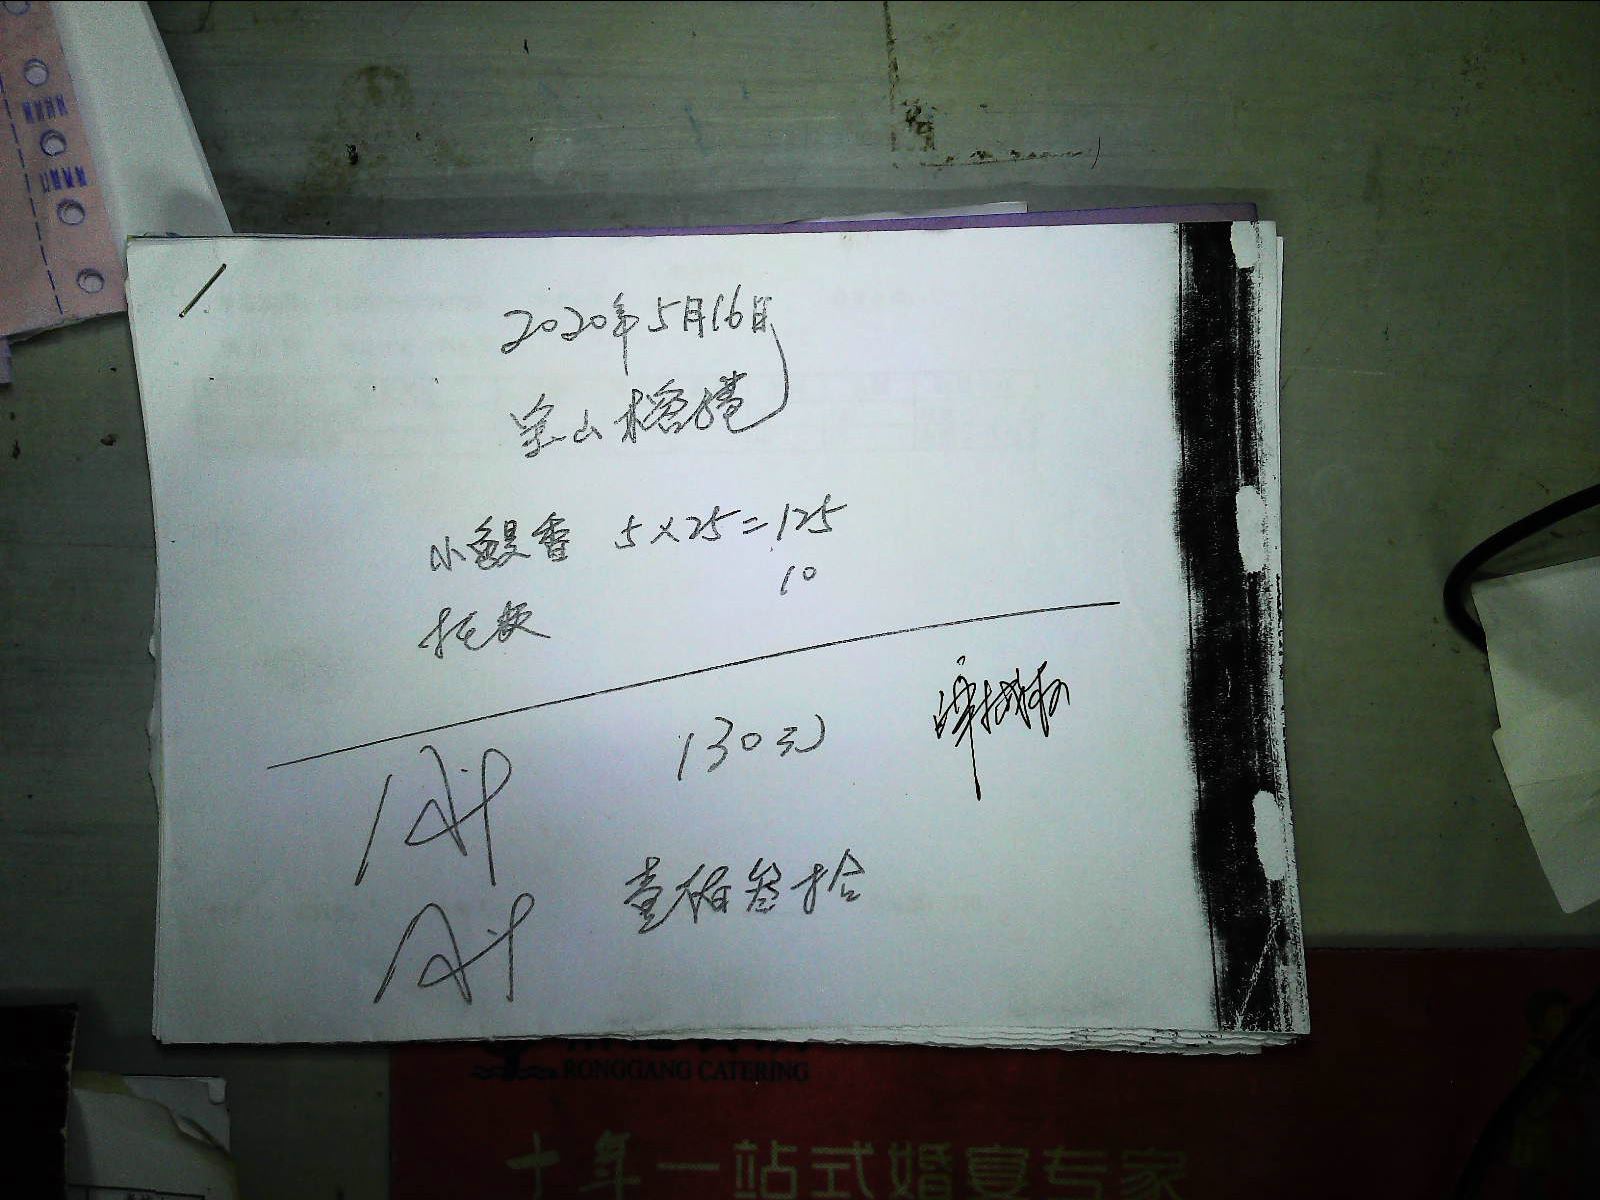 2020年5月16日
宝山
小鳗香 5×25=125
10
托板
130元
壹佰叁拾
RONGGANG CATERING
十年一站式婚宴专家